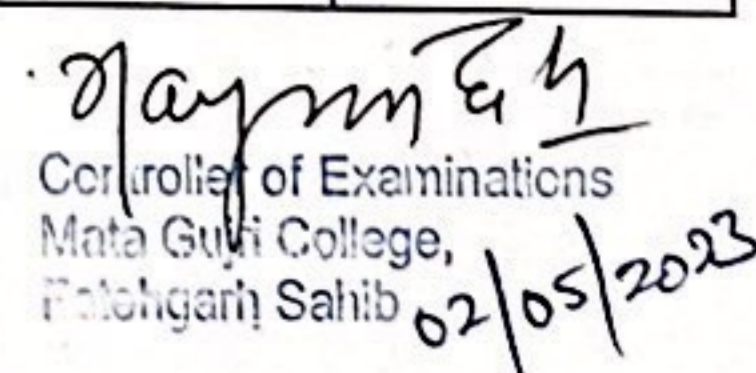 Controller of Examinations
Mata Gujri College,
Fatehgarh Sahib 02/05/2023